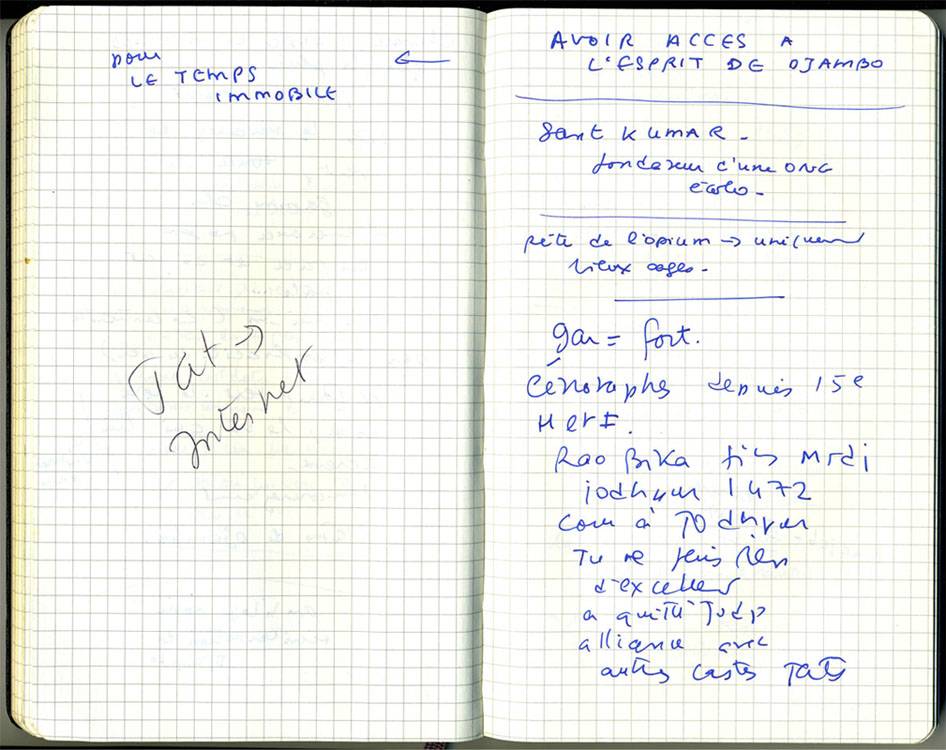 pour
LE TEMPS
IMMOBILE
←
Jat →
Internet
AVOIR ACCES A
L'ESPRIT DE DJAMBO
Sant KUMAR -
fondateur d'une ONG
écolo -
pâte de l'opium →
vieux sages -
gar = fort.
Cénotaphes depuis 15e
Rao Bika fils
jodhpur 1472
à Jodhpur
Tu ne fais rien
d'excellent
a quitté Jodp
alliance avec
autres castes Jats